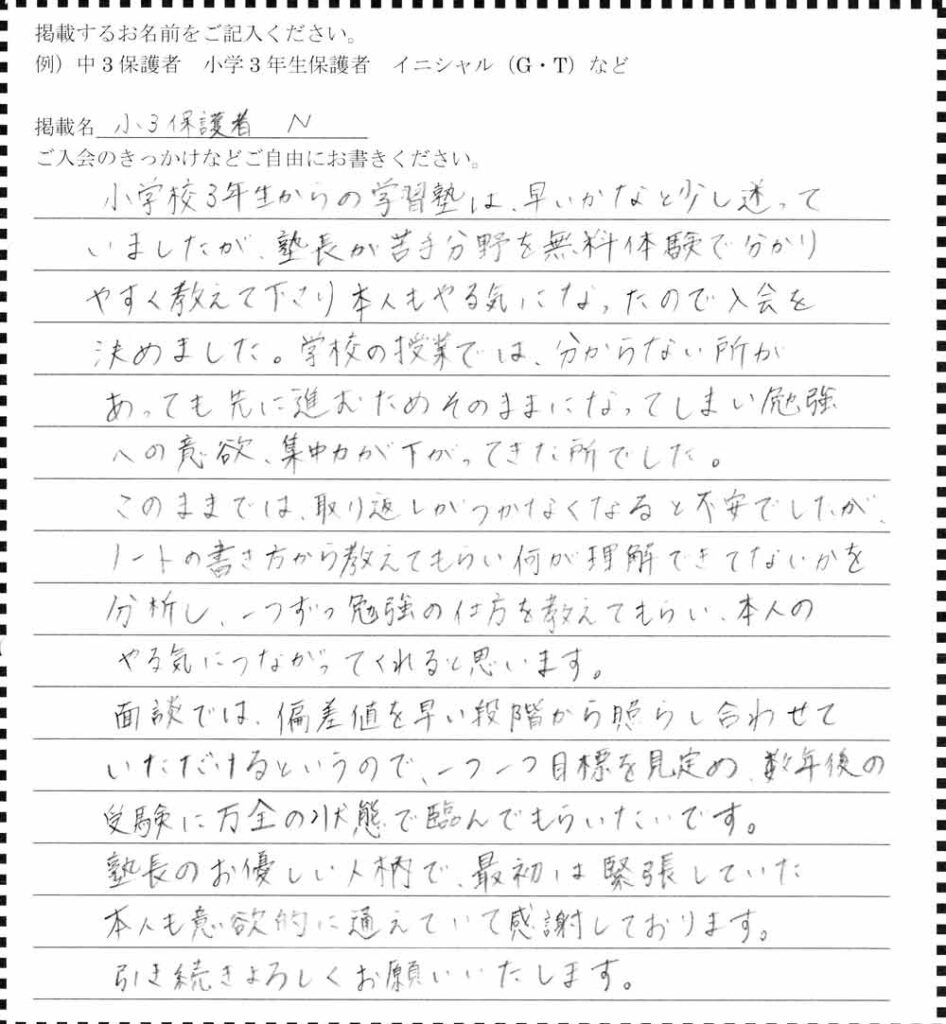 掲載するお名前をご記入ください。
例）中3保護者　小学3年生保護者　イニシャル（G・T）など
掲載名 小3保護者　N
ご入会のきっかけなどご自由にお書きください。
小学校3年生からの学習塾は、早いかなと少し迷って
いましたが、塾長が苦手分野を無料体験で分かり
やすく教えて下さり本人もやる気になったので入会を
決めました。学校の授業では、分からない所が
あっても先に進むためそのままになってしまい勉強
への意欲、集中力が下がってきた所でした。
このままでは、取り返しがつかなくなると不安でしたが、
ノートの書き方から教えてもらい何が理解できてないかを
分析し、一つずつ勉強の仕方を教えてもらい、本人の
やる気につながってくれると思います。
面談では、偏差値を早い段階から照らし合わせて
いただけるというので、一つ一つ目標を見定め、数年後の
受験に万全の状態で臨んでもらいたいです。
塾長のお優しい人柄で、最初は緊張していた
本人も意欲的に通えていて感謝しております。
引き続きよろしくお願いいたします。